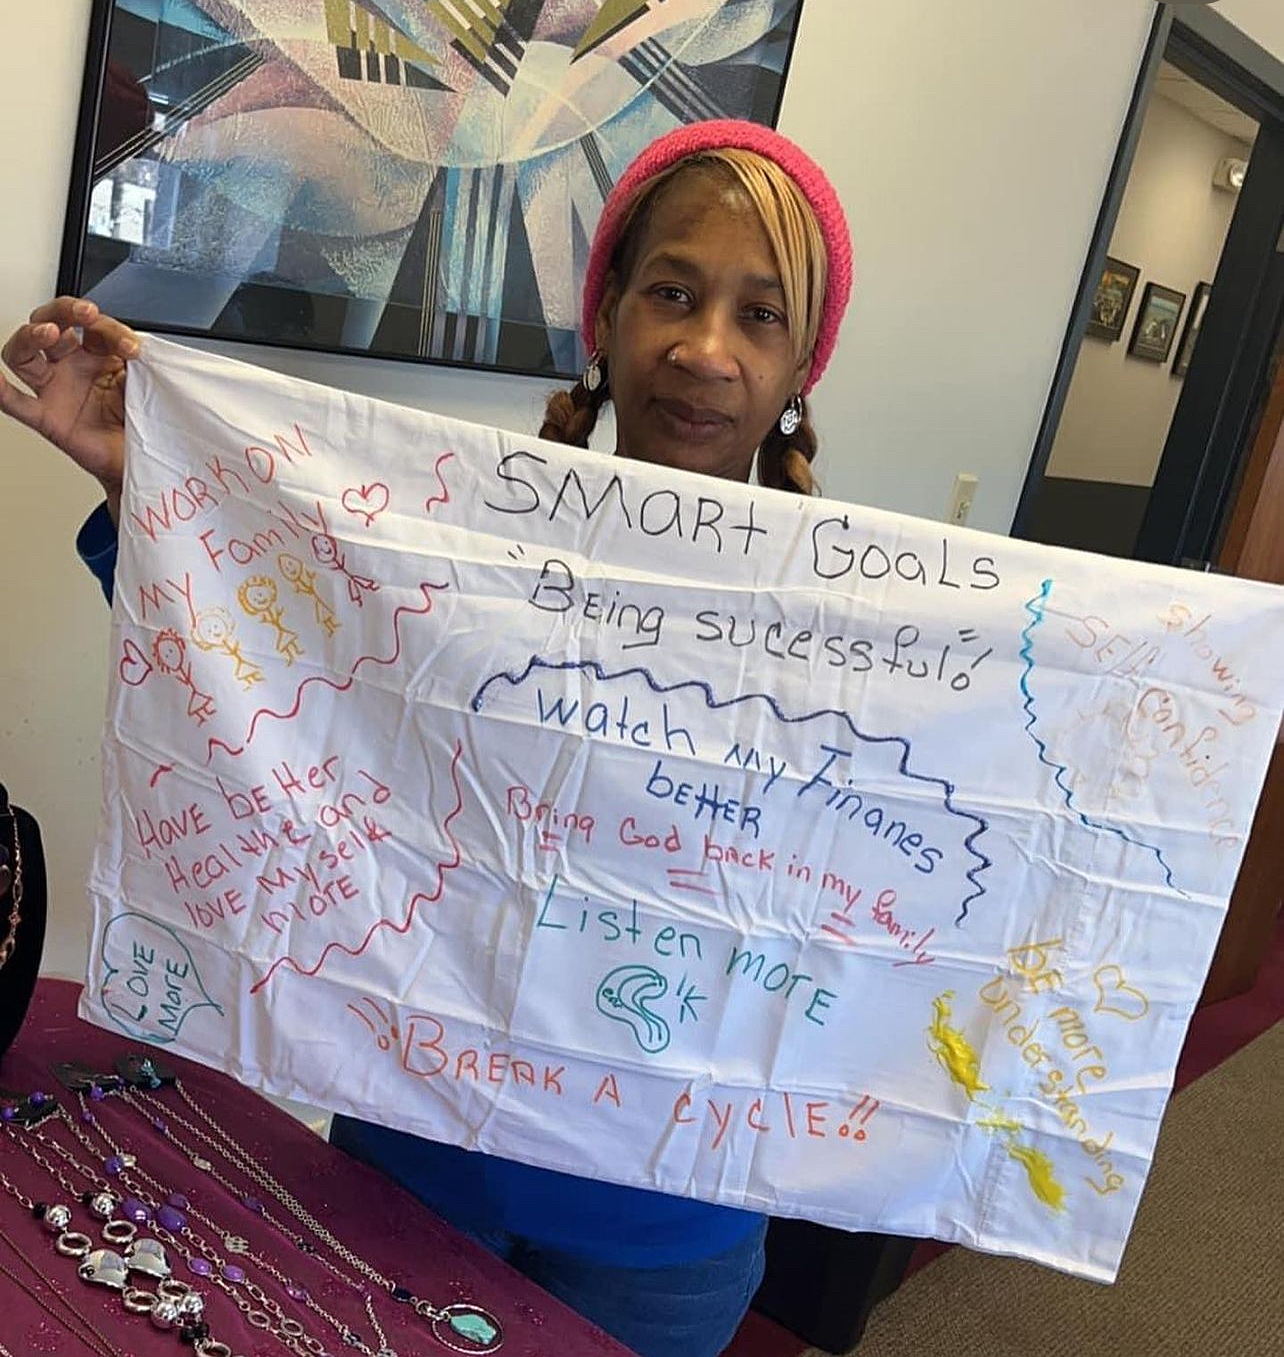 SMART GOALS
"BEing sucessful"!
WORK ON
MY Family
Watch MY Finanes
bETTER
Bring God back in my family
Listen MORE
'K
!! BREAK A CYCLE!!
HAVE bETTER
Healthe and
lOVE Myself
MORE
LOVE
MORE
Showing
SElf Confidence
bE more
understanding